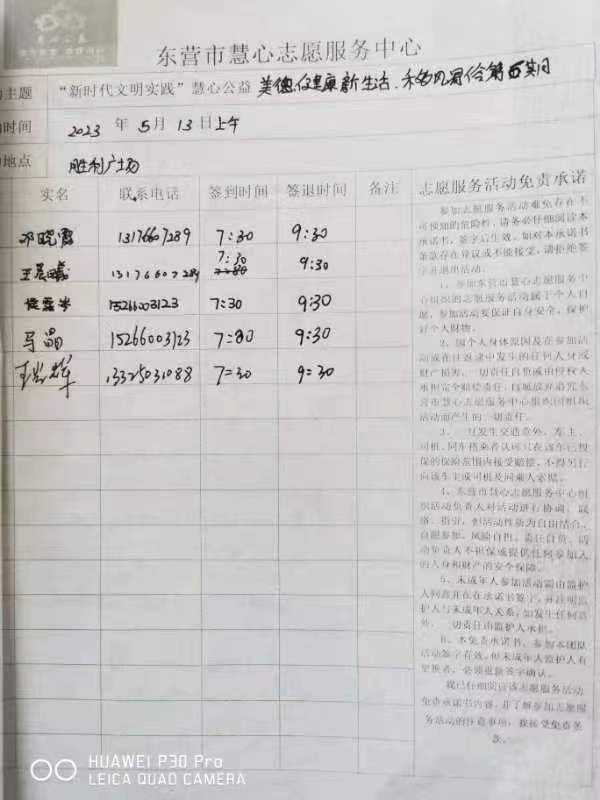 东营市慧心志愿服务中心
主题 “新时代文明实践”慧心公益 美德健康新生活.
时间 2023 年 5 月 13 日上午
地点 胜利广场
实名 联系电话 签到时间 签退时间 备注
邓晓霞 13176607289 7:30 9:30
13176607289 7:30 9:30
15266003123 7:30 9:30
马晶 15266003123 7:30 9:30
13325031088 7:30 9:30
志愿服务活动免责承诺
参加志愿服务活动难免存在不
可预知的危险性，请务必仔细阅读本
承诺书，签字后生效。如对本承诺书
条款存在异议或不能接受，请拒绝签
字并退出活动。
1、参加东营市慧心志愿服务中
心组织的志愿服务活动属于个人自
愿，参加活动要保证自身安全，保护
好个人财物。
2、因个人身体原因及在参加活
动或在往返途中发生的任何人身或
财产损害，一切责任自负或由侵权人
承担完全赔偿责任，自愿放弃追究东
营市慧心志愿服务中心组织因组织
活动而产生的一切责任。
3、一旦发生交通意外，车主、
司机、同车搭乘者认可只在该车已投
保的保险范围内接受赔偿，不得另行
向该车主或司机及同乘人索赔。
4、东营市慧心志愿服务中心组
织活动负责人对活动进行协调、联
络、指引，但活动性质为自由结合、
自愿参加、风险自担、责任自负。活
动负责人不担保或提供任何参加人
的人身和财产的安全保障。
5、未成年人参加活动需由监护
人同意并在在承诺书签字，并注明监
护人与未成年人关系，如发生任何意
外，一切责任由监护人承担。
6、本免责承诺书，参加本团队
活动签字有效。但未成年人监护人有
变换者，必须重新签字确认。
我已仔细阅读该志愿服务活动
免责承诺书内容，并了解参加志愿服
务活动的注意事项，我接受免责条
款。
HUAWEI P30 Pro
LEICA QUAD CAMERA